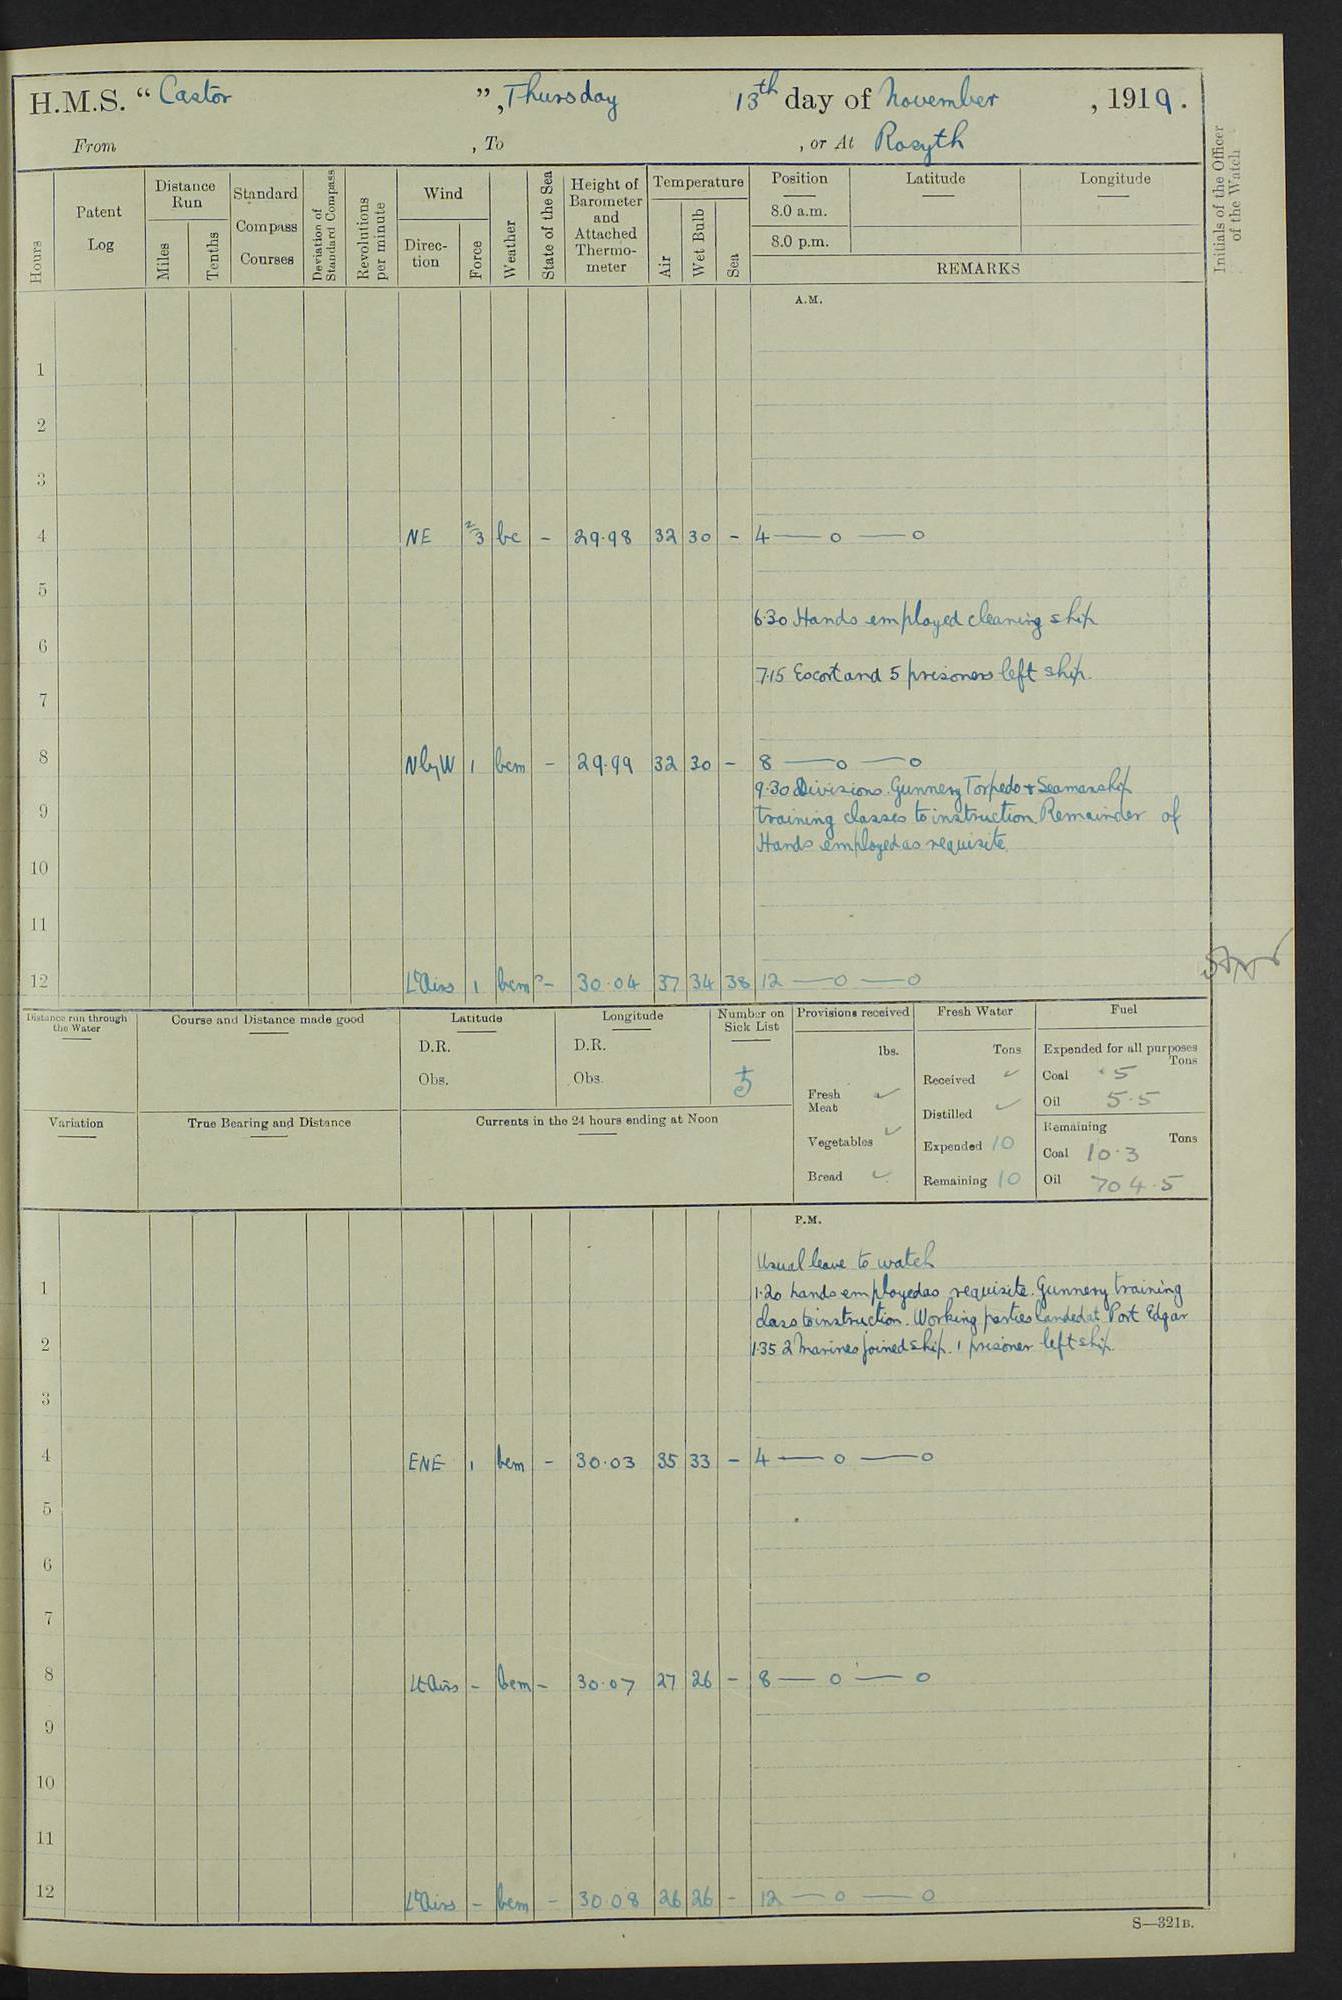 H.M.S. “ Castor ”, Thursday 13th day of November , 1919.
From , To , or At Rosyth
Hours
Patent Log
Distance Run
Miles
Tenths
Standard Compass Courses
Deviation of Standard Compass
Revolutions per minute
Wind
Direc-tion
Force
Weather
State of the Sea
Height of Barometer and Attached Thermo-meter
Temperature
Air
Wet Bulb
Sea
Position
8.0 a.m.
8.0 p.m.
Latitude
Longitude
REMARKS
Initials of the Officer of the Watch
A.M.
1
2
3
4 NE 2/3 bc - 29.98 32 30 - 4 — o — o
5
6.30 Hands employed cleaning ship
6
7.15 Escort and 5 prisoners left ship.
7
8 NbyW 1 bcm - 29.99 32 30 - 8 — o — o
9.30 Divisions. Gunnery Torpedo & Seamanship
9 training classes to instruction Remainder of
Hands employed as requisite
10
11
12 Lt Airs 1 bcm - 30.04 37 34 38 12 — o — o
Distance run through the Water
Course and Distance made good
Latitude
D.R.
Obs.
Longitude
D.R.
Obs.
Number on Sick List
5
Provisions received
lbs.
Fresh Meat ✓
Vegetables ✓
Bread ✓
Fresh Water
Tons
Received ✓
Distilled ✓
Expended 10
Remaining 10
Fuel
Expended for all purposes
Tons
Coal .5
Oil 5.5
Remaining
Tons
Coal 10.3
Oil 704.5
Variation
True Bearing and Distance
Currents in the 24 hours ending at Noon
P.M.
Usual leave to watch
1 1.20 hands employed as requisite. Gunnery training
class to instruction. Working parties landed at Port Edgar
2 1.35 2 Marines joined ship. 1 prisoner left ship.
3
4 ENE 1 bcm - 30.03 35 33 - 4 — o — o
5
6
7
8 Lt Airs - bcm - 30.07 27 26 - 8 — o — o
9
10
11
12 Lt Airs - bcm - 30.08 26 26 - 12 — o — o
S—321B.